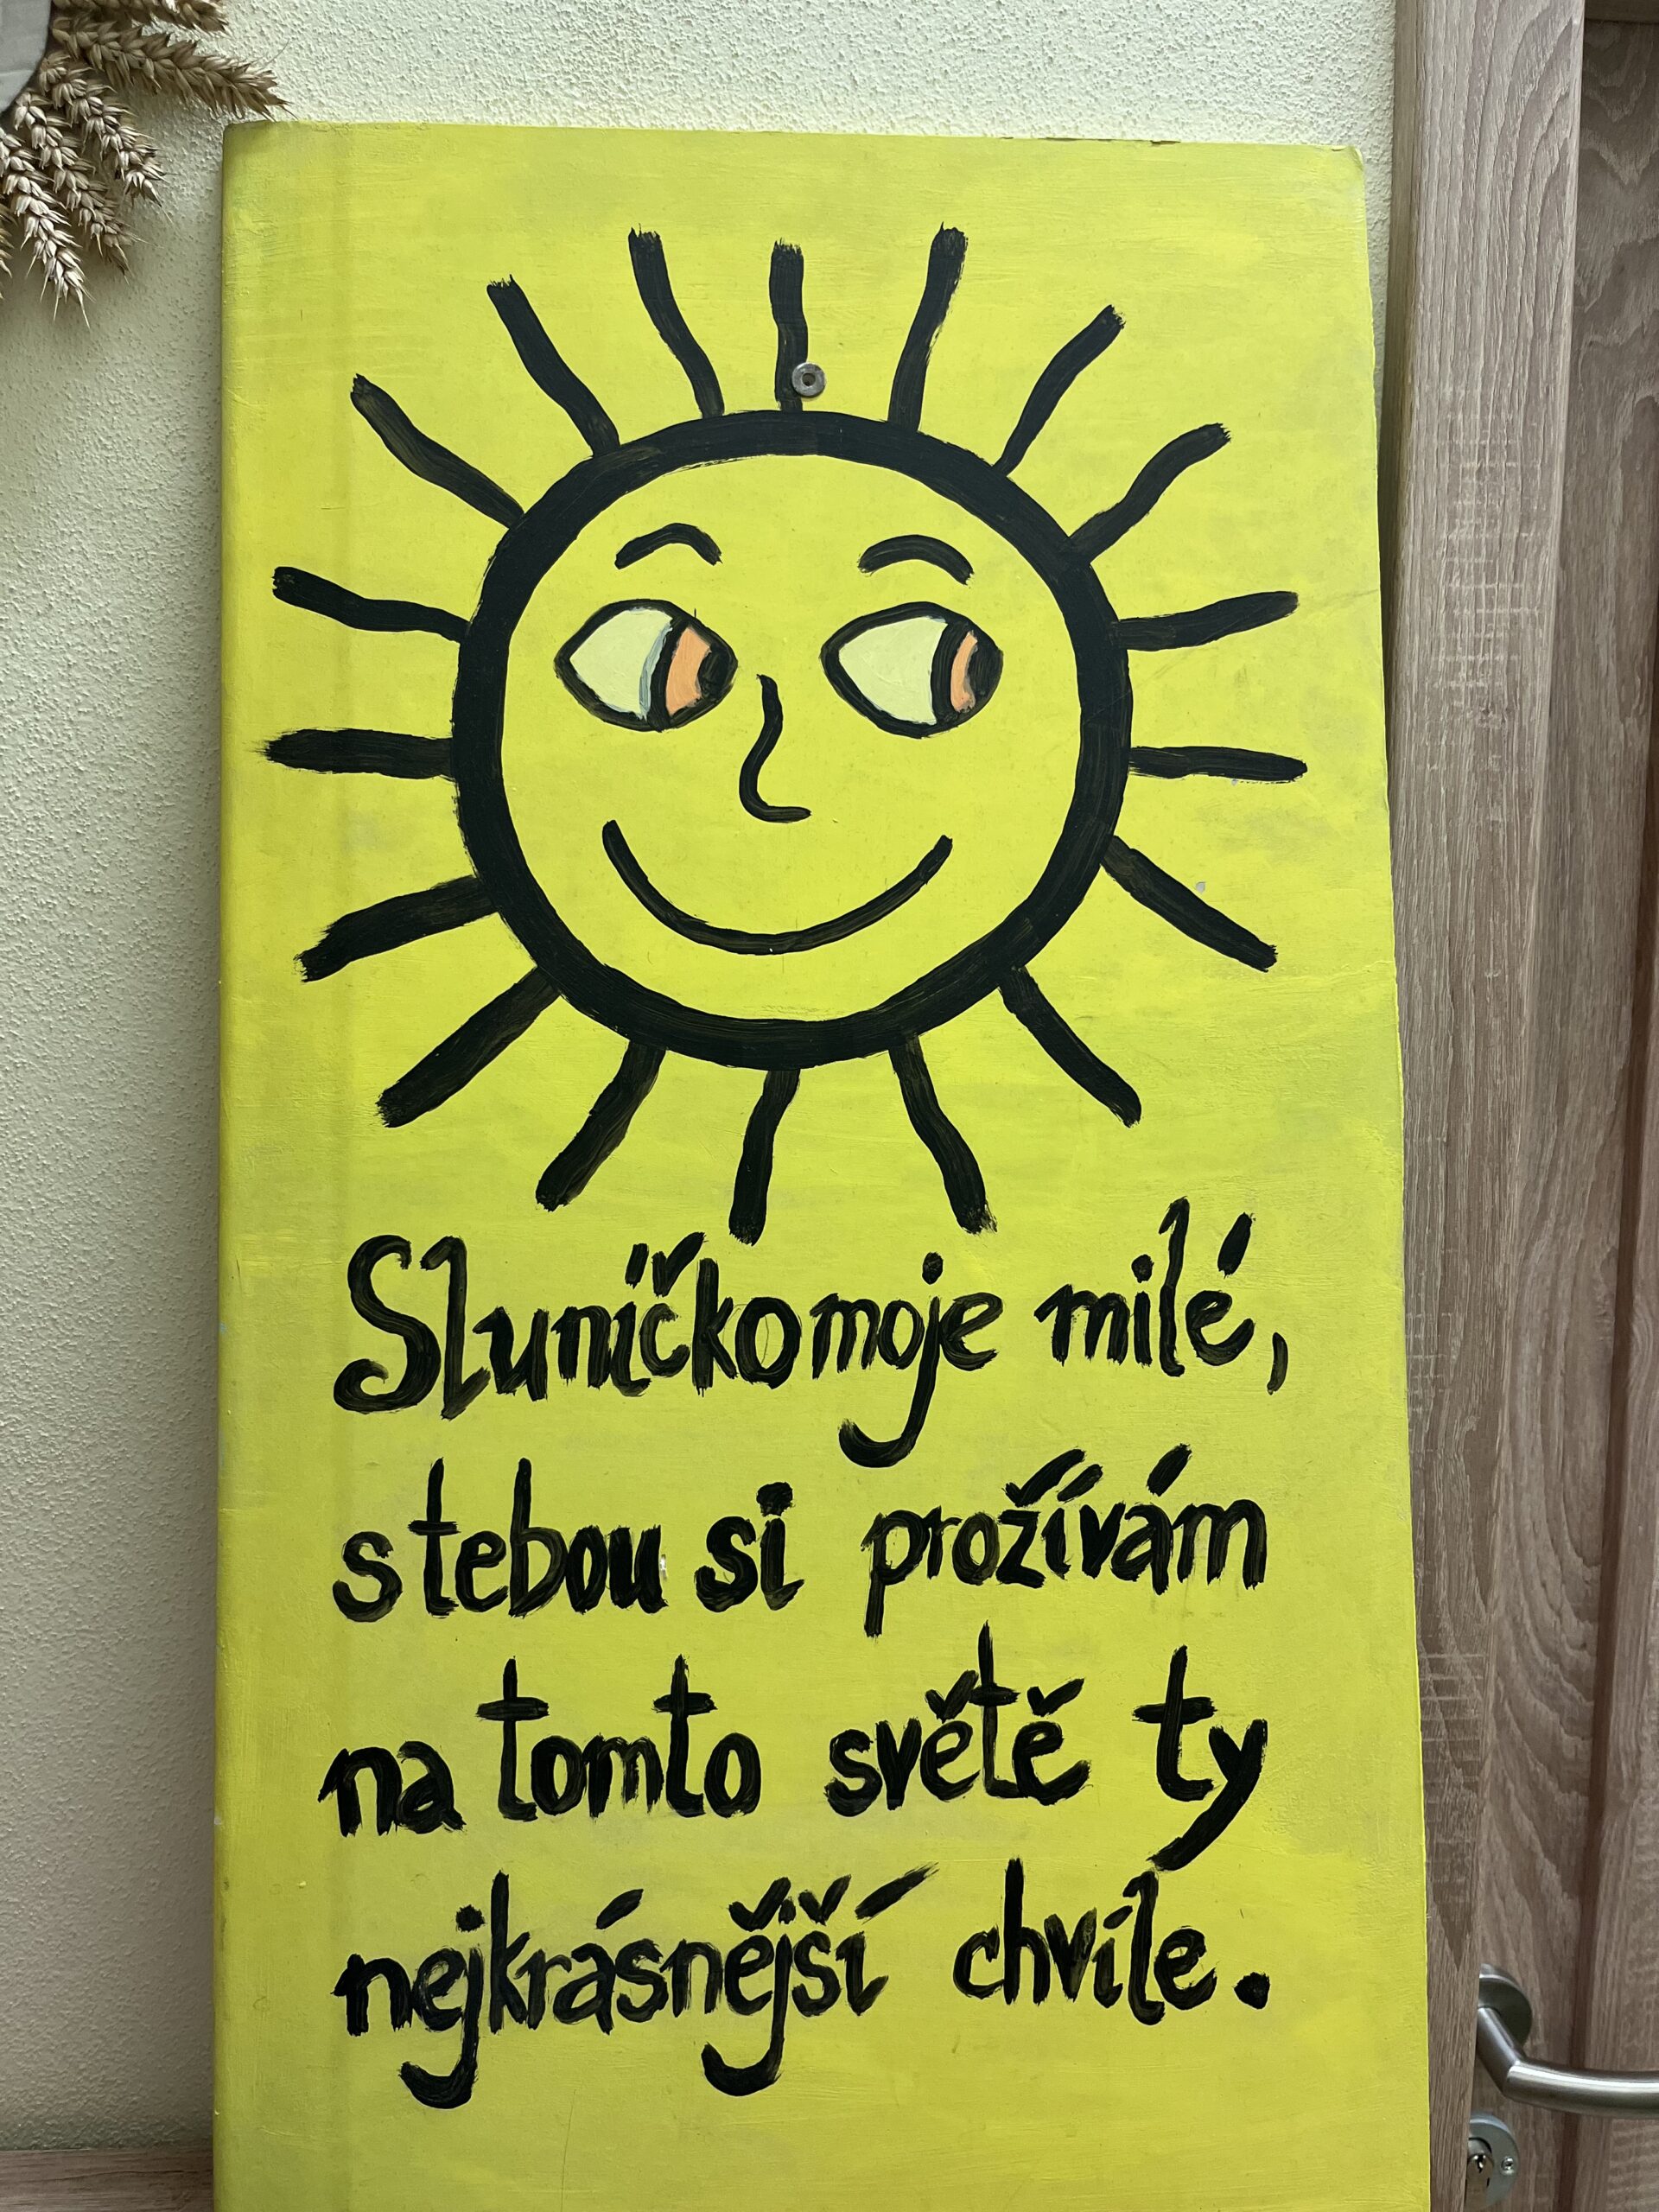 Sluníčko moje milé,
s tebou si prožívám
na tomto světě ty
nejkrásnější chvíle.